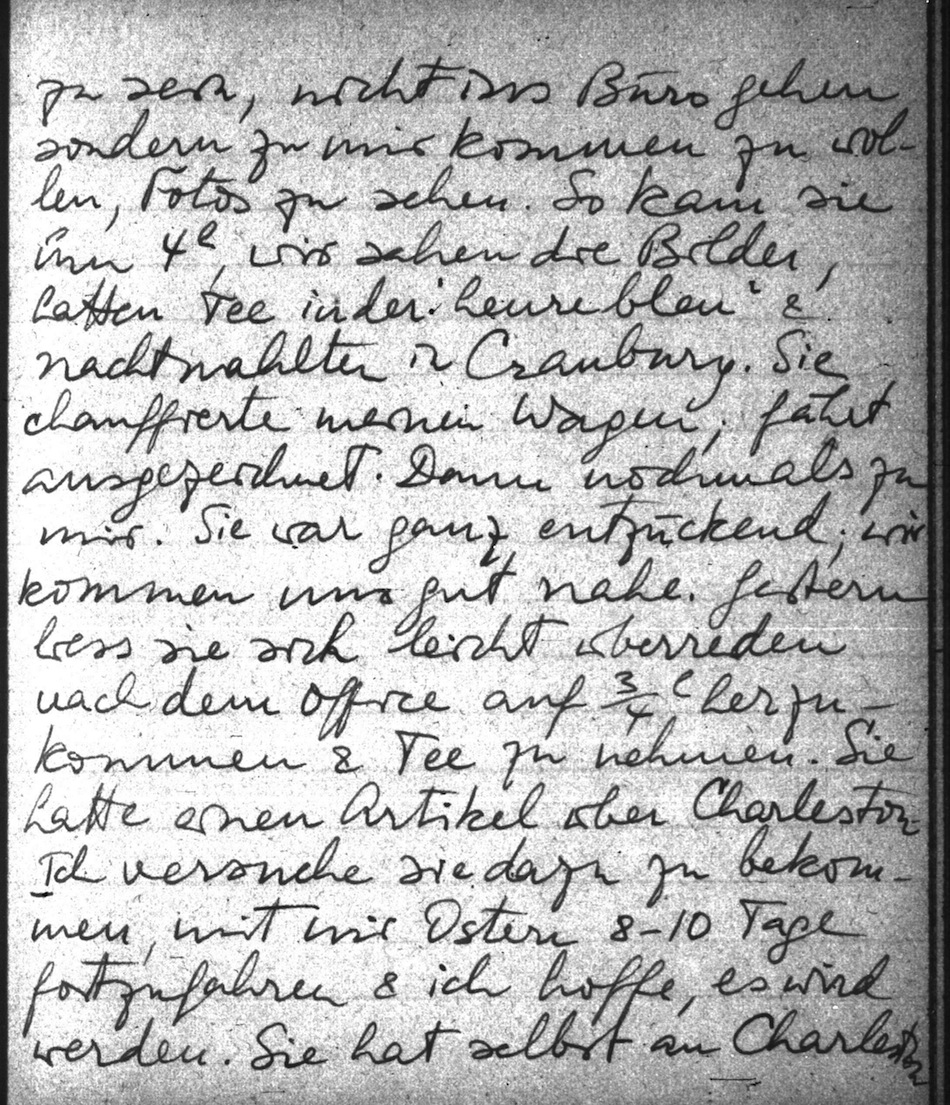 zu sein, nicht ins Büro gehen,
sondern zu mir kommen zu wol-
len, Fotos zu sehen. So kam sie
um 4h, wir sahen die Bilder,
hatten Tee in der "heure bleu" &
nachtmahlten in Cranbury. Sie
chauffierte meinen Wagen, fährt
ausgezeichnet. Dann nochmals zu
mir. Sie war ganz entzückend; wir
kommen uns gut nahe. Gestern
liess sie sich leicht überreden
nach dem Office auf 3/4 h herzu-
kommen & Tee zu nehmen. Sie
hatte einen Artikel über Charleston.
Ich versuche sie dazu zu bekom-
men, mit mir Ostern 8-10 Tage
fortzufahren & ich hoffe, es wird
werden. Sie hat selbst an Charleston